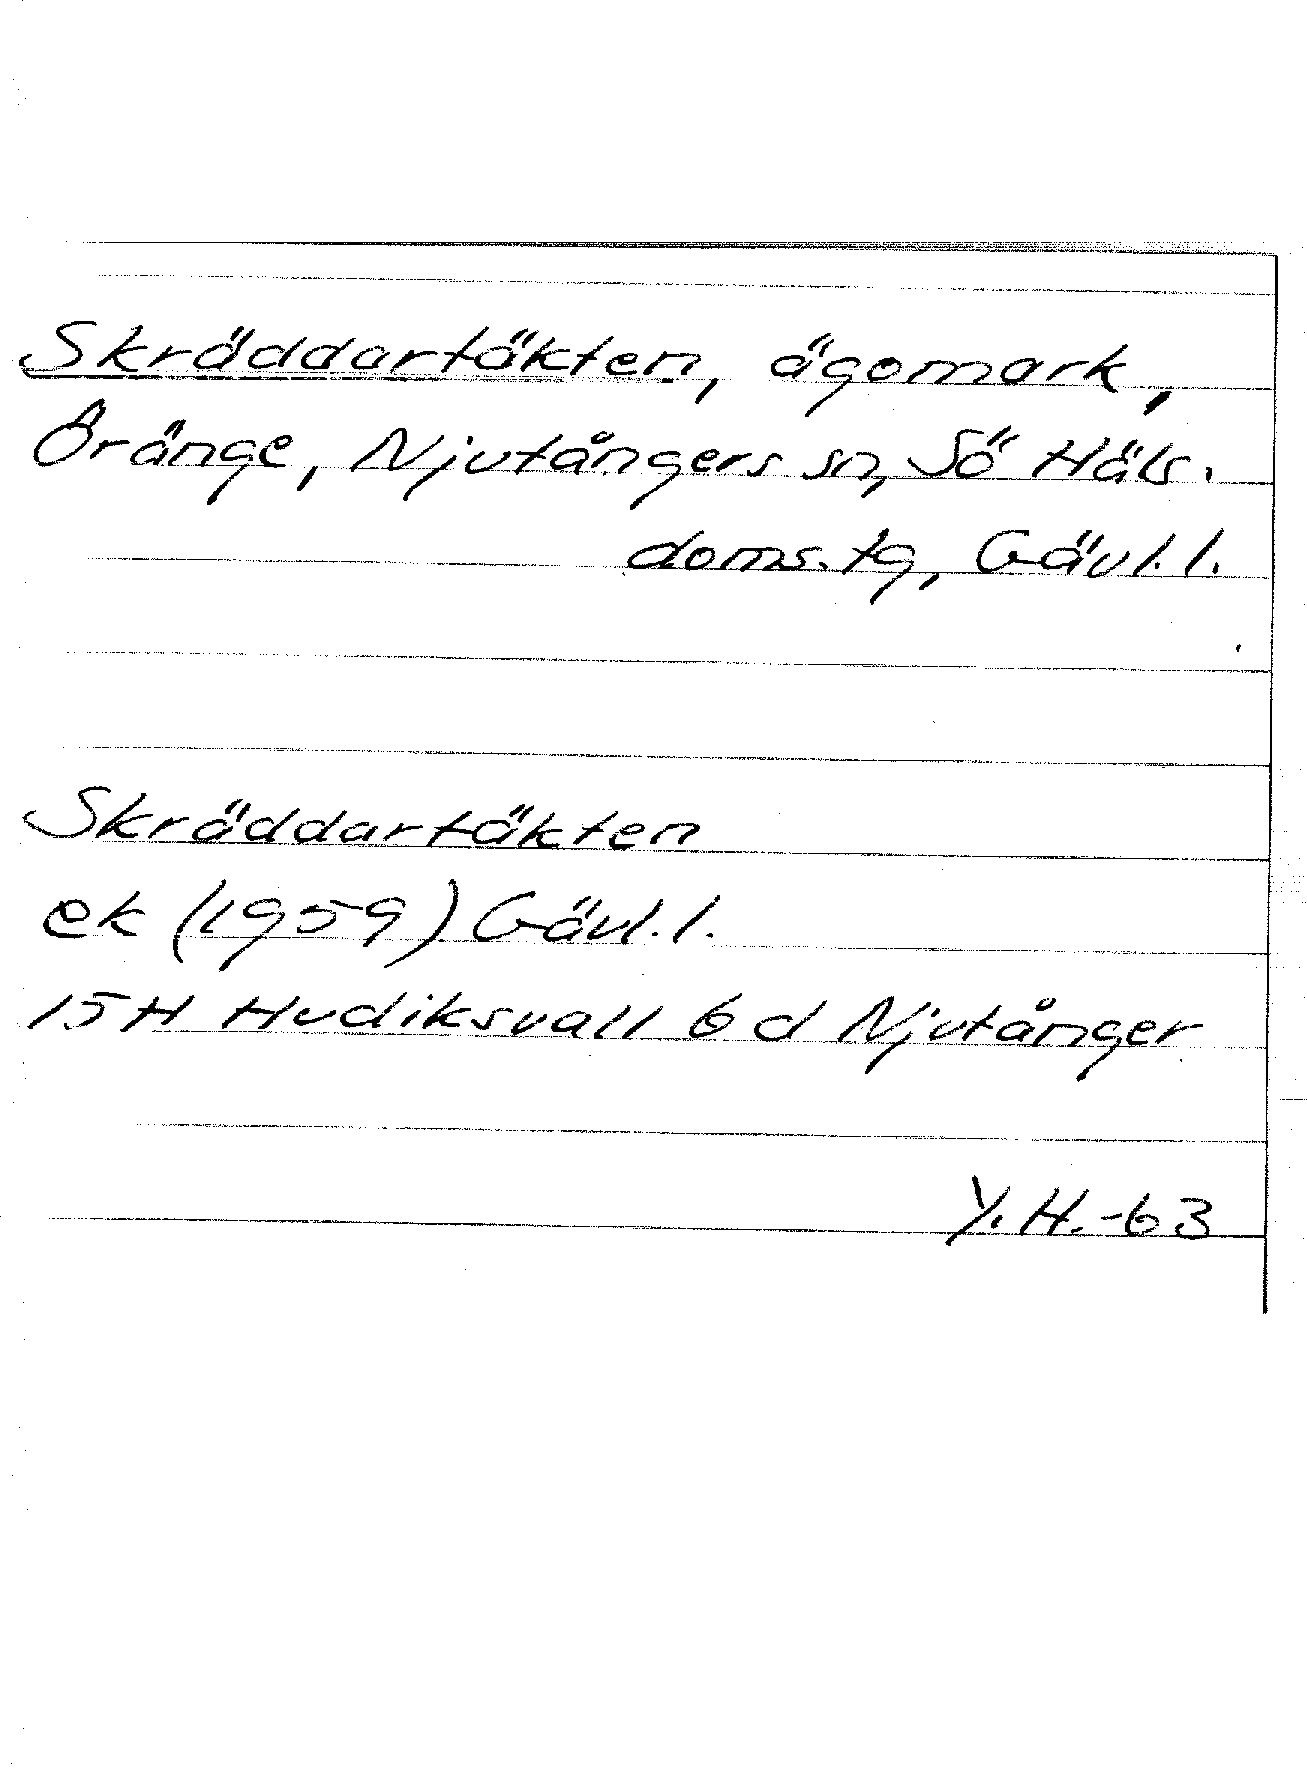 Skräddartäkten, ägomark,
Öränge, Njutångers sn, Sö Häls.
doms.tg, Gävl.l.
Skräddartäkten
ek (1959) Gävl.l.
15H Hudiksvall 6d Njutånger
Y.H.-63